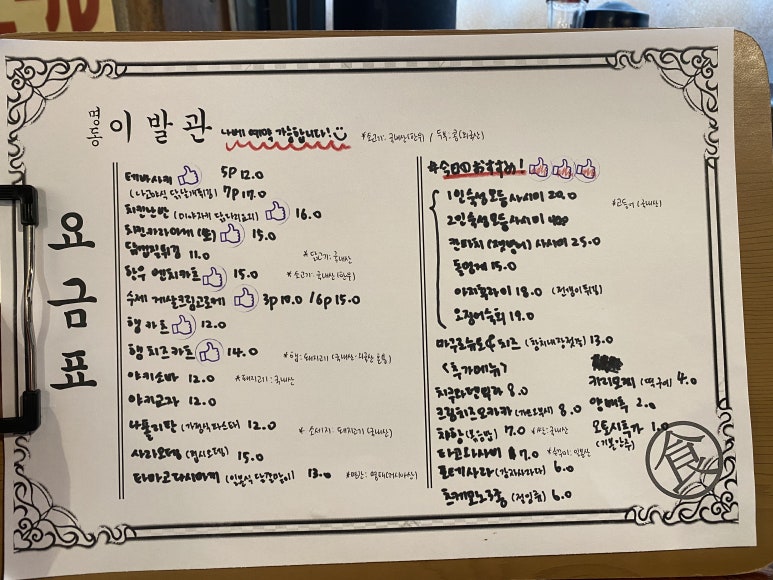 명동 이발관
네이버 예약 가능합니다!
*소고기: 국내산(한우) / 두부: 콩(외국산)
여금벽
테바사키 5P 12.0
(나고야식 닭날개튀김) 7P 17.0
치킨난반 (미야자키 닭다리요리) 16.0
치킨가라아게 (소) 15.0
닭껍질튀김 11.0
*닭고기: 국내산
한우 멘치카츠 15.0
*소고기: 국내산(한우)
수제 게살크림고로케 3P 10.0 / 6P 15.0
햄 카츠 12.0
햄 치즈카츠 14.0
*햄: 돼지고기 (국내산·외국산 혼용)
야키소바 12.0
*돼지고기: 국내산
야키교자 12.0
나폴리탄 (가정식파스타) 12.0
*소세지: 돼지고기(국내산)
사라오뎅 (접시오뎅) 15.0
타마고다시마키 (일본식 계란말이) 13.0
*명란: 명태(러시아산)
#今日のおすすめ!
1인 숙성모둠사시미 20.0
*고등어 (국내산)
2인숙성모둠사시미
칸파치 (잿방어) 사시미 25.0
돌멍게 15.0
아지후라이 18.0 (전갱이튀김)
오징어숙회 19.0
마구로슈토&치즈 (참치내장젓갈) 13.0
<추가메뉴>
치쿠와 튀김 8.0
카라모찌 (떡구이) 4.0
크림치즈오카카 (가쓰오부시) 8.0
양배추 2.0
차항 (볶음밥) 7.0 *쌀: 국내산
오토시추가 1.0
(기본안주)
타코와사비 7.0
포테사라 (감자사라다) 6.0
츠케모노 (절임류) 6.0
食